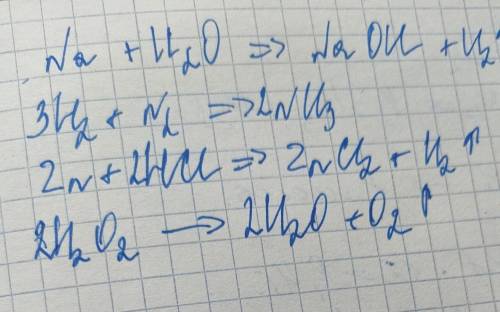 Na + H₂O => NaOH + H₂↑
3H₂ + N₂ => 2NH₃
Zn + 2HCl => ZnCl₂ + H₂↑
2H₂O₂ → 2H₂O + O₂↑